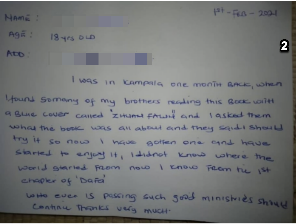 1st - Feb - 2021
NAME :
AGE : 18 yrs OLD
2
ADD :
I WAS IN KAMPALA ONE MONTH BACK, WHEN
I found so many of my brothers reading this Book with
a Blue cover called "ZHUAN FALUN" and I asked them
what the book was all about and they said I should
try it so now I have gotten one and have
started to enjoy it, I did not know where the
world started from now I know from the 1st
chapter of 'Dafa'
who ever is passing such good ministries should
continue thanks very much.